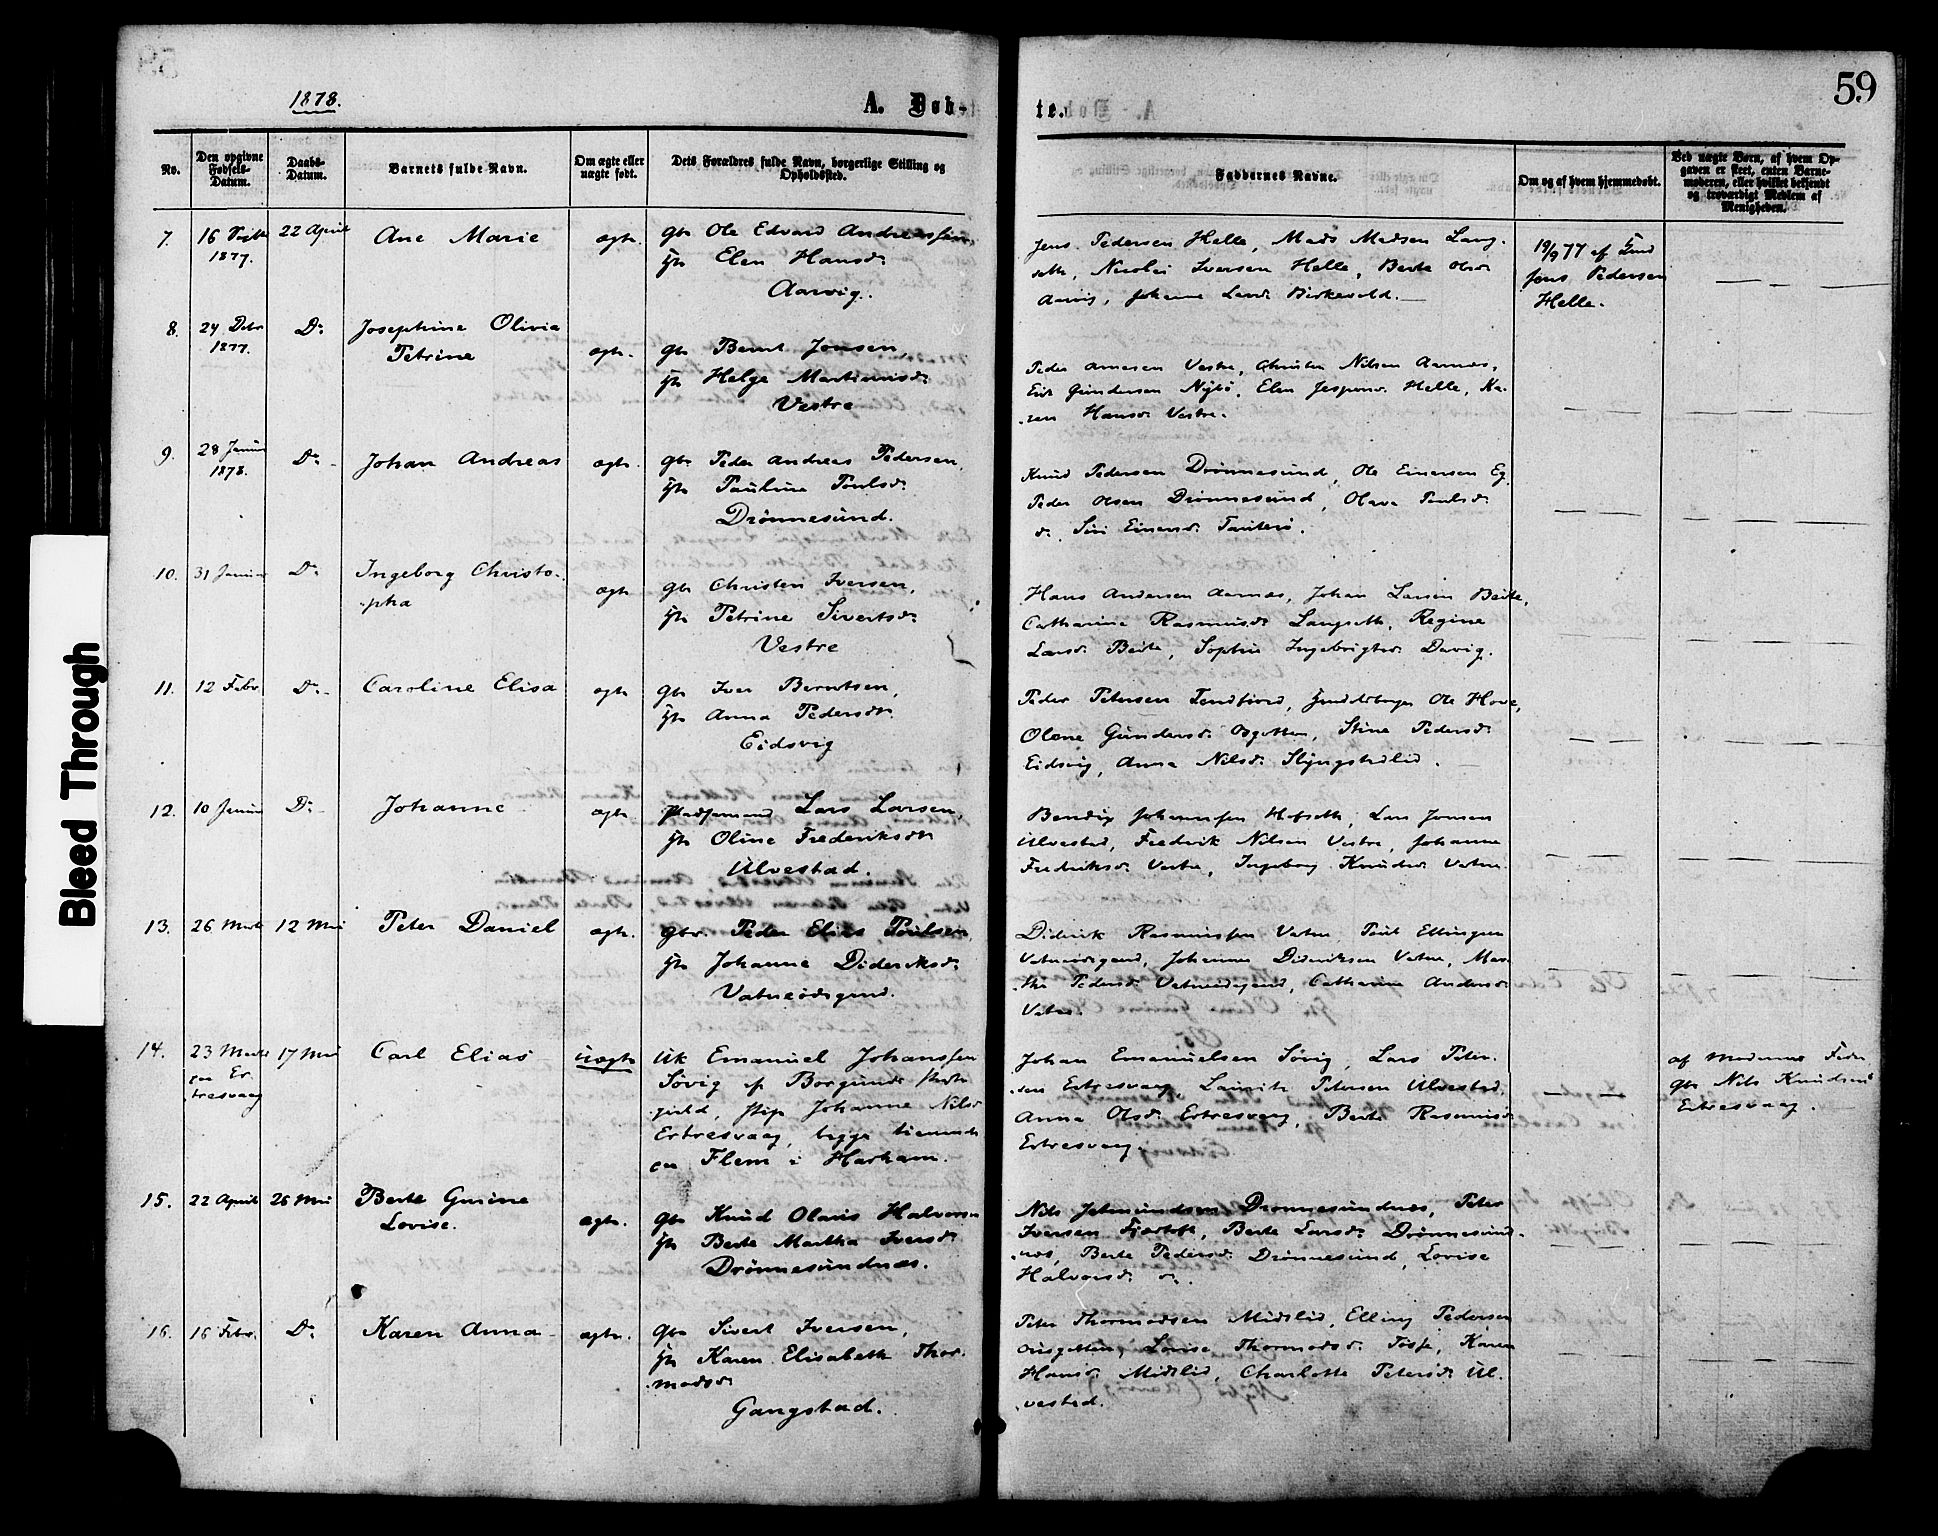 59
1878.
A. Døb-
te.
No.
Den opgivne Fødsels-Datum.
Daabs-Datum.
Barnets fulde Navn.
Om ægte eller uægte født.
Dets Forældres fulde Navn, borgerlige Stilling og Opholdssted.
Faddernes Navne.
Om og af hvem hjemmedøbt.
Ved uægte Børn, af hvem Op-
gaven er skeet, enten Barne-
moderen, eller hvilket bekjendt
og troværdigt Medlem af
Menigheden.
7. 22 April Ane Marie ægte
1877.
Gbr Ole Edvard Andreassen,
Elen Hansdr
Aarvig.
Jens Pedersen Helle, Mads Madsen Lang-
seth, Nicolai Iversen Helle, Berte Olsdr
Aarvig, Johanne Larsdr Birkevold.
19/9 77 af
Jens Pedersen
Helle.
8. 24 Debr Do Josephine Olivia
1877. Petrine ægte.
Gbr Bernt Jonsen,
Helge Martinusdr
Vestre
Peder Arnesen Vestre, Christen Nilsen Aarnes,
Gundersen Nybø, Elen Jespersdr Helle, Ka-
ren Hansdr Vestre.
9. 28 Januar Do Johan Andreas ægte.
1878.
Gbr Peder Andreas Pedersen,
Pauline Poulsdr
Drønnesund.
Knud Pedersen Drønnesund, Ole Einersen
Peder Olsen Drønnesund, Olava Poulsdr
do, Siri Einersdr
10. 31 Januar Do Ingeborg Christo-
pha ægte
Gbr Christen Iversen,
Petrine Sivertsdr
Vestre
Hans Andersen Aarnes, Johan Larsen Beite,
Catharine Rasmusdr Langseth, Regine
Larsdr Beite, Sophie Ingebrigtsdr
11. 12 Febr Do Caroline Elisa ægte
Gbr Iver Berntsen,
Anna Pedersdr
Eidsvig
Peder Petersen Ole Hove,
Olene Gundersdr Stine Pedersdr
Eidsvig, Anna Nilsdr Slyngstadlid.
12. 10 Januar Do Johanne ægte
Pladsemand Lars Larsen,
Oline Frederiksdr
Ulvestad.
Bendix Johannesen Hofseth, Lars Jonsen
Ulvestad, Fredrik Nilsen Vestre, Johanne
Fredriksdr Vestre, Ingeborg Knudsdr Vatne
13. 26 Marts 12 Mai Peter Daniel ægte.
Gbr. Peder Elias Poulsen,
Johanne Dideriksdr
Vatneødegaard.
Diderik Rasmussen Vatne, Poul Ellingsen
Vatneødegaard, Johannes Dideriksen Vatne, Mar-
the Pedersdr Vatneødegaard, Catharine Andersdr
Vatne.
14. 23 Marts 17 Mai Carl Elias uægte
paa Er-
tresvaag
Uk Emanuel Johanssen
Søvig af Borgunds Præste-
gjeld, Pige Johanne Nilsdr
Ertresvaag, begge tienende
paa Flem i Harham.
Johan Emanuelsen Søvig, Lars Peter-
sen Ertresvaag, Laurits Petersen Ulvestad,
Anna Olsdr Ertresvaag, Berte Rasmusdr
Ertresvaag.
af Moderens Fader
Gbr Nils Knudsen
Ertresvaag.
15. 22 April 26 Mai Berte Gurine
Lovise. ægte.
Gbr Knud Olaus Halvorsen
Berte Martha Iversdr
Drønnesundnes.
Nils Jetmundsen Drønnesundnes, Peter
Iversen Fjærtoft, Berte Larsdr Drønnesund-
nes, Berte Pedersdr Drønnesund, Lovise
Halvorsdr do.
16. 16 Febr. Do Karen Anna ægte.
Gbr Sivert Iversen,
Karen Elisabeth Thor-
modsdr
Gangstad.
Peter Thormodsen Midtlid, Elling Pedersen
Lovise Thormodsdr Karen
Hansdr Midtlid, Charlotte Petersdr Ul-
vestad.
Bleed Through